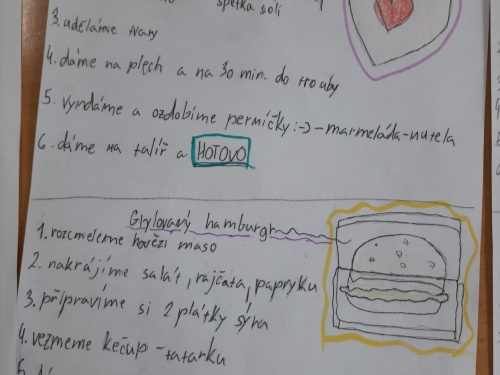 špetka soli
3. uděláme tvary
4. dáme na plech a na 30 min. do trouby
5. vyndáme a ozdobíme perníčky :-) - marmeláda - nutela
6. dáme na talíř a HOTOVO
Grylovaný hamburgr
1. rozemeleme hovězí maso
2. nakrájíme salát, rajčata, papryku
3. přípravíme si 2 plátky sýra
4. vezmeme kečup - tatarku